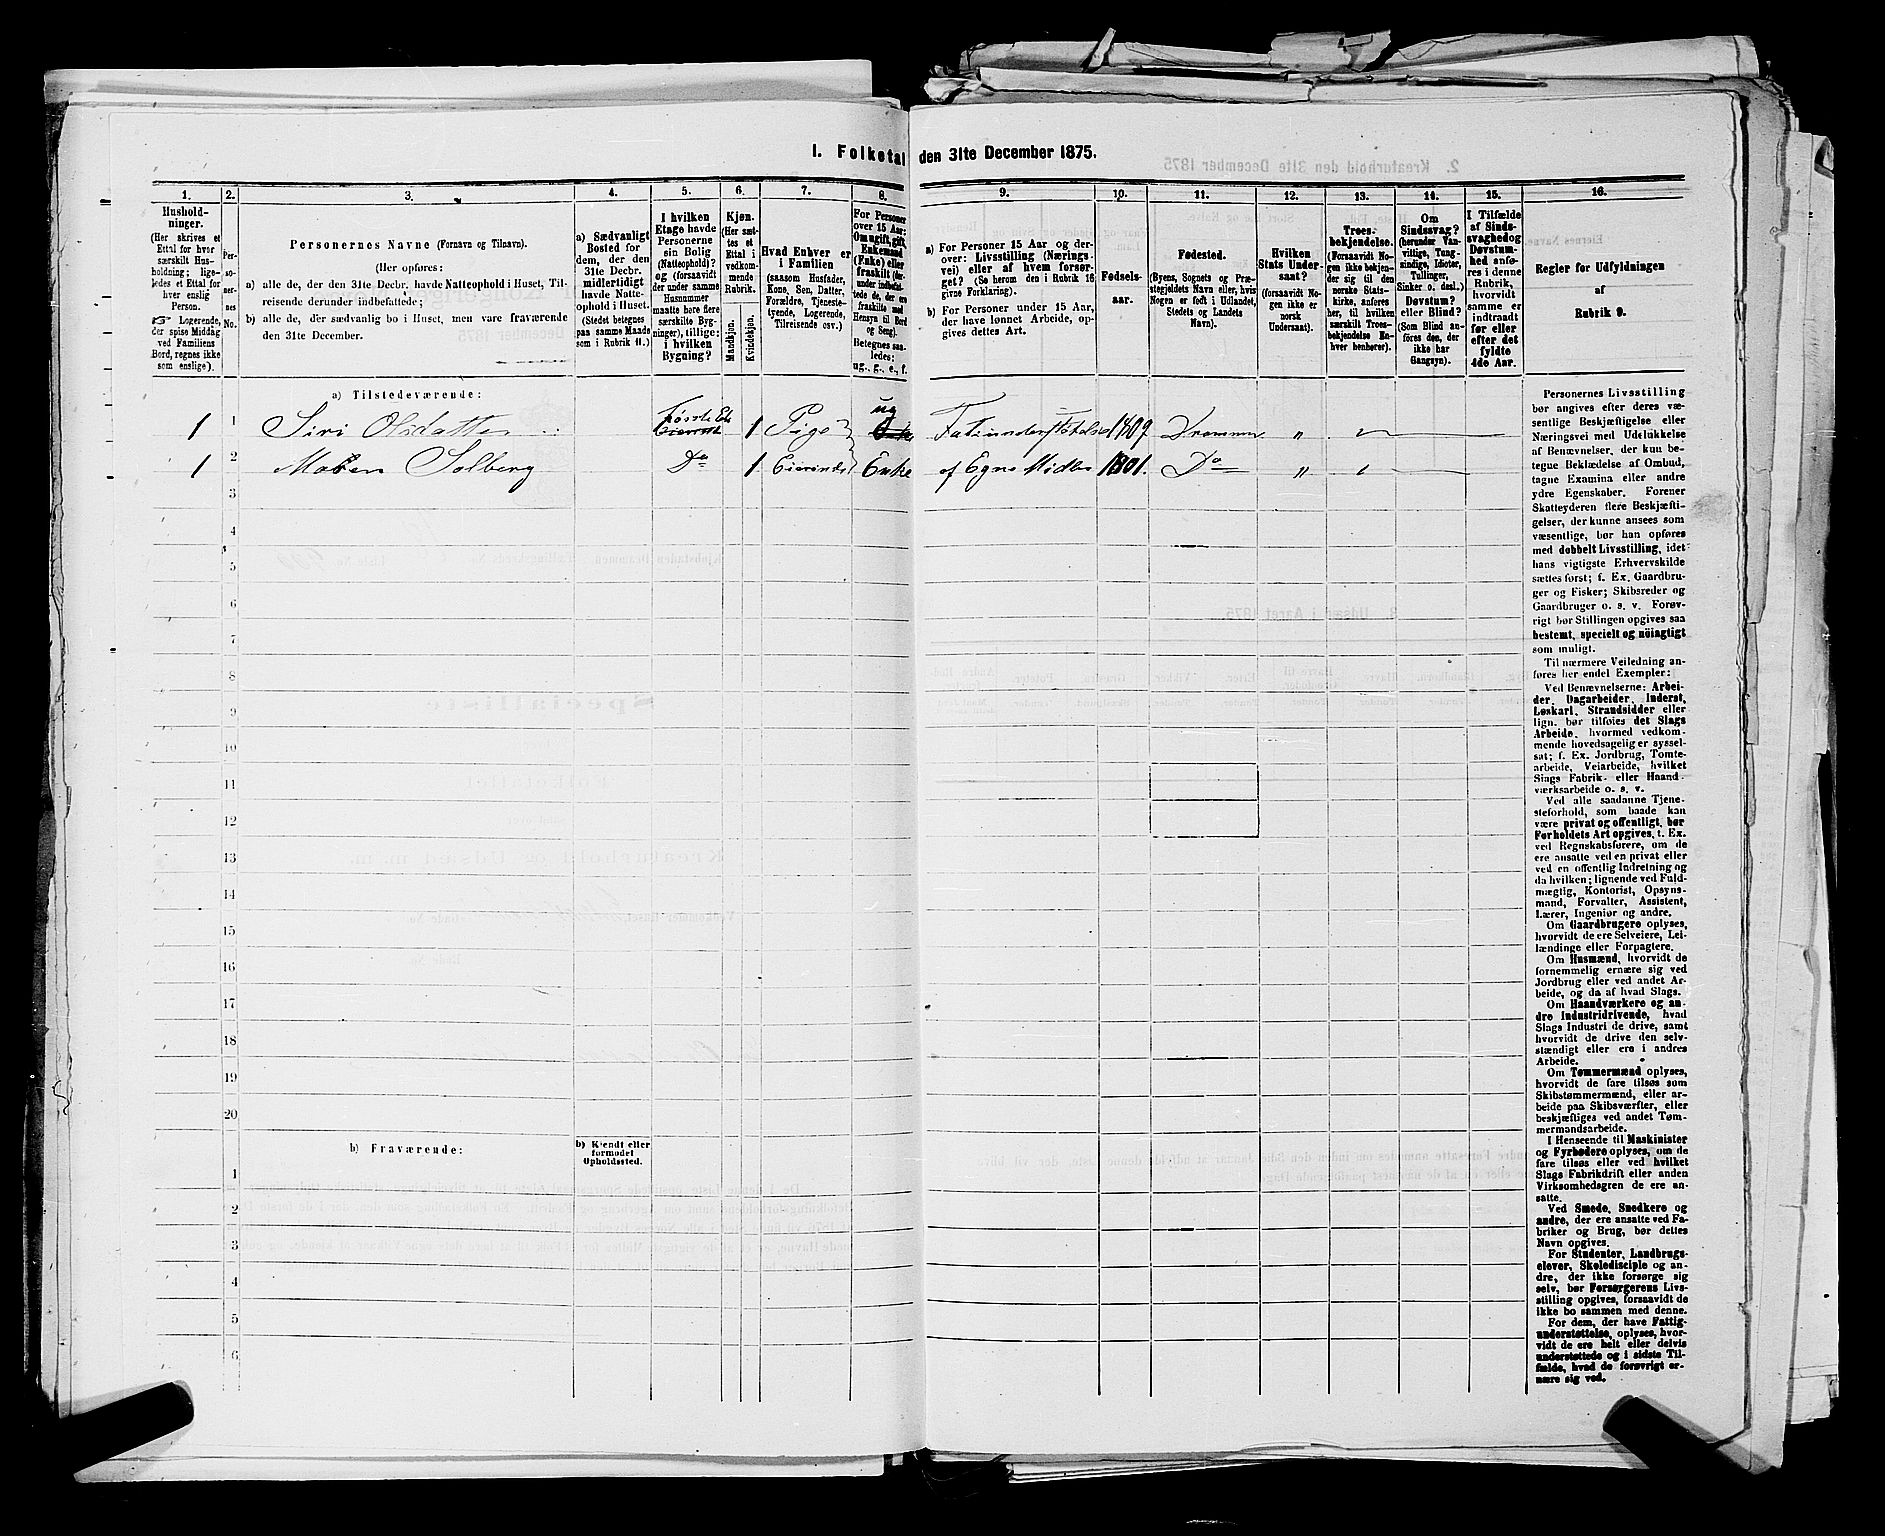 I. Folketal
den 31te December 1875.
1. 2. 3. 4. 5. 6. 7. 8. 9. 10. 11. 12. 13. 14. 15. 16.
Hushold-
ninger.
(Her skrives et
Ettal for hver
særskilt Hus-
holdning; lige-
ledes et Ettal for
hver enslig
Person.
☞ Logerende,
der spise Middag
ved Familiens
Bord, regnes ikke
som enslige).
Per-
so-
ner-
nes
No.
Personernes Navne (Fornavn og Tilnavn).
(Her opføres:
a) alle de, der den 31te Decbr. havde Natteophold i Huset, Til-
reisende derunder indbefattede;
b) alle de, der sædvanlig bo i Huset, men vare fraværende
den 31te December.
a) Sædvanligt
Bosted for
dem, der den
31te Decbr.
midlertidigt
havde Natte-
ophold i Huset.
(Stedet betegnes
paa samme Maade
som i Rubrik 11.)
I hvilken
Etage havde
Personerne
sin Bolig
(Natteophold)?
og (forsaavidt
der under samme
Husnummer
maatte høre flere
særskilte Byg-
ninger), tillige:
i hvilken
Bygning?
Kjøn.
(Her sæt-
tes et
Ettal i
vedkom-
mende
Rubrik.
Mandkjøn.
Kvindekjøn.
Hvad Enhver er
i Familien
(saasom Husfader,
Kone, Søn, Datter,
Forældre, Tjeneste-
tyende, Logerende,
Tilreisende osv.)
For Personer
over 15 Aar:
Om ugift, gift,
Enkemand
(Enke) eller
fraskilt (der-
under indbefat-
tede de, der ere
fraskilte med
Hensyn til Bord
og Seng).
Betegnes saa-
ledes:
ug., g., e., f.
a) For Personer 15 Aar og der-
over: Livsstilling (Nærings-
vei) eller af hvem forsør-
get? (Se herom den i Rubrik 16
givne Forklaring).
b) For Personer under 15 Aar,
der have lønnet Arbeide, op-
gives dettes Art.
Fødsels-
aar.
Fødested.
(Byens, Sognets og Præ-
stegjeldets Navn eller, hvis
Nogen er født i Udlandet,
Stedets og Landets
Navn).
Hvilken
Stats Under-
saat?
(forsaavidt No-
gen ikke er
norsk
Undersaat).
Troes-
bekjendelse.
(Forsaavidt No-
gen ikke bekjen-
der sig til den
norske Stats-
kirke, anføres
her, til hvilken
særskilt Troes-
bekjendelse En-
hver henhører).
Om
Sindssvag?
(herunder Van-
vittige, Tung-
sindige, Idioter,
Tullinger,
Sinker o. desl.)
Døvstum?
eller Blind?
(Som Blind an-
føres den, der
ikke har
Gangsyn).
I Tilfælde
af Sinds-
svaghed og
Døvstum-
hed anfø-
res i denne
Rubrik,
hvorvidt
samme er
indtraadt
før eller
efter det
fyldte
4de Aar.
Regler for Udfyldningen
af
Rubrik 9.
a) Tilstedeværende:
1 1 Siri Olsdatter 1 Pige ug 1809 "
1 2 Maren Solberg Do 1 Enke af Egne Midler 1801. Do "
3
4
5
6
7
8
9
10
11
12
13
14
15
16
17
18
19
20
b) Fraværende:
b) Kjendt eller
formodet
Opholdssted.
1
2
3
4
5
6
Personernes Livsstilling
bør angives efter deres væ-
sentlige Beskjæftigelse eller
Næringsvei med Udelukkelse
af Benævnelser, der kun be-
tegne Beklædelse af Ombud,
tagne Examina eller andre
ydre Egenskaber. Forener
Skatteyderen flere Beskjæfti-
gelser, der kunne ansees som
væsentlige, bør han opføres
med dobbelt Livsstilling, idet
hans vigtigste Erhvervskilde
sættes først; f. Ex. Gaardbru-
ger og Fisker; Skibsreder og
Gaardbruger o. s. v. Forøv-
rigt bør Stillingen opgives saa
bestemt, specielt og nöiagtigt
som muligt.
Til nærmere Veiledning an-
føres her endel Exempler:
Ved Benævnelserne: Arbei-
der, Dagarbeider, Inderst,
Løskarl, Strandsidder eller
lign. bør tilføies det Slags
Arbeide, hvormed vedkom-
mende hovedsagelig er syssel-
sat; f. Ex. Jordbrug, Tomte-
arbeide, Veiarbeide, hvilket
Slags Fabrik- eller Haand-
værksarbeide o. s. v.
Ved alle saadanne Tjene-
steforhold, som baade kan
være privat og offentligt, bør
Forholdets Art opgives, t. Ex.
ved Regnskabsførere, om de
ere ansatte ved en privat eller
ved en offentlig Indretning og
da hvilken; lignende ved Fuld-
mægtig, Kontorist, Opsyns-
mand, Forvalter, Assistent,
Lærer, Ingeniør og andre.
Om Gaardbrugere oplyses,
hvorvidt de ere Selveiere, Lei-
lændinge eller Forpagtere.
Om Husmænd, hvorvidt de
fornemmelig ernære sig ved
Jordbrug eller ved andet Ar-
beide, og da af hvad Slags.
Om Haandværkere og an-
dre Industridrivende, hvad
Slags Industri de drive, samt
hvorvidt de drive den selv-
stændigt eller ere i andres
Arbeide.
Om Tømmermænd oplyses,
hvorvidt de fare tilsøs som
Skibstømmermænd, eller ar-
beide paa Skibsværfter, eller
beskjæftiges ved andet Tøm-
mermandsarbeide.
I Henseende til Maskinister
og Fyrbødere oplyses, om de
fare tilsøs eller ved hvilket
Slags Fabrikdrift eller anden
Virksomhedsgren de ere an-
satte.
Ved Smede, Snedkere og
andre, der ere ansatte ved Fa-
briker og Brug, bør dettes
Navn opgives.
For Studenter, Landbrugs-
elever, Skoledisciple og an-
dre, der ikke forsørge sig
selv, bør Forsørgerens Livs-
stilling opgives, forsaavidt de
ikke bo sammen med denne.
For dem, der have Fattig-
understøttelse, oplyses, hvor-
vidt de ere helt eller delvis
understøttede og i sidste Til-
fælde, hvad de forøvrigt er-
nære sig ved.